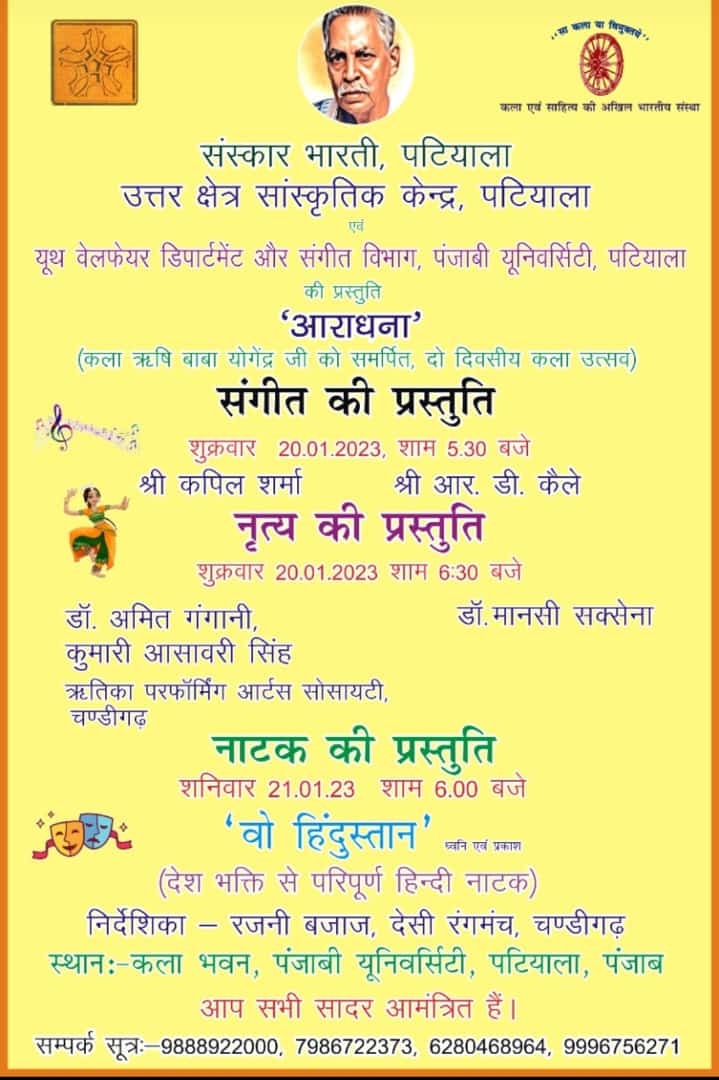 ''सा कला या विमुक्तये''
कला एवं साहित्य की अखिल भारतीय संस्था
संस्कार भारती, पटियाला
उत्तर क्षेत्र सांस्कृतिक केन्द्र, पटियाला
एवं
यूथ वेलफेयर डिपार्टमेंट और संगीत विभाग, पंजाबी यूनिवर्सिटी, पटियाला
की प्रस्तुति
'आराधना'
(कला ऋषि बाबा योगेंद्र जी को समर्पित, दो दिवसीय कला उत्सव)
संगीत की प्रस्तुति
शुक्रवार 20.01.2023, शाम 5.30 बजे
श्री कपिल शर्मा श्री आर. डी. कैले
नृत्य की प्रस्तुति
शुक्रवार 20.01.2023 शाम 6:30 बजे
डॉ. अमित गंगानी, डॉ.मानसी सक्सेना
कुमारी आसावरी सिंह
ऋतिका परफॉर्मिंग आर्टस सोसायटी,
चण्डीगढ़
नाटक की प्रस्तुति
शनिवार 21.01.23 शाम 6.00 बजे
'वो हिंदुस्तान' ध्वनि एवं प्रकाश
(देश भक्ति से परिपूर्ण हिन्दी नाटक)
निर्देशिका – रजनी बजाज, देसी रंगमंच, चण्डीगढ़
स्थान:-कला भवन, पंजाबी यूनिवर्सिटी, पटियाला, पंजाब
आप सभी सादर आमंत्रित हैं।
सम्पर्क सूत्र:–9888922000, 7986722373, 6280468964, 9996756271